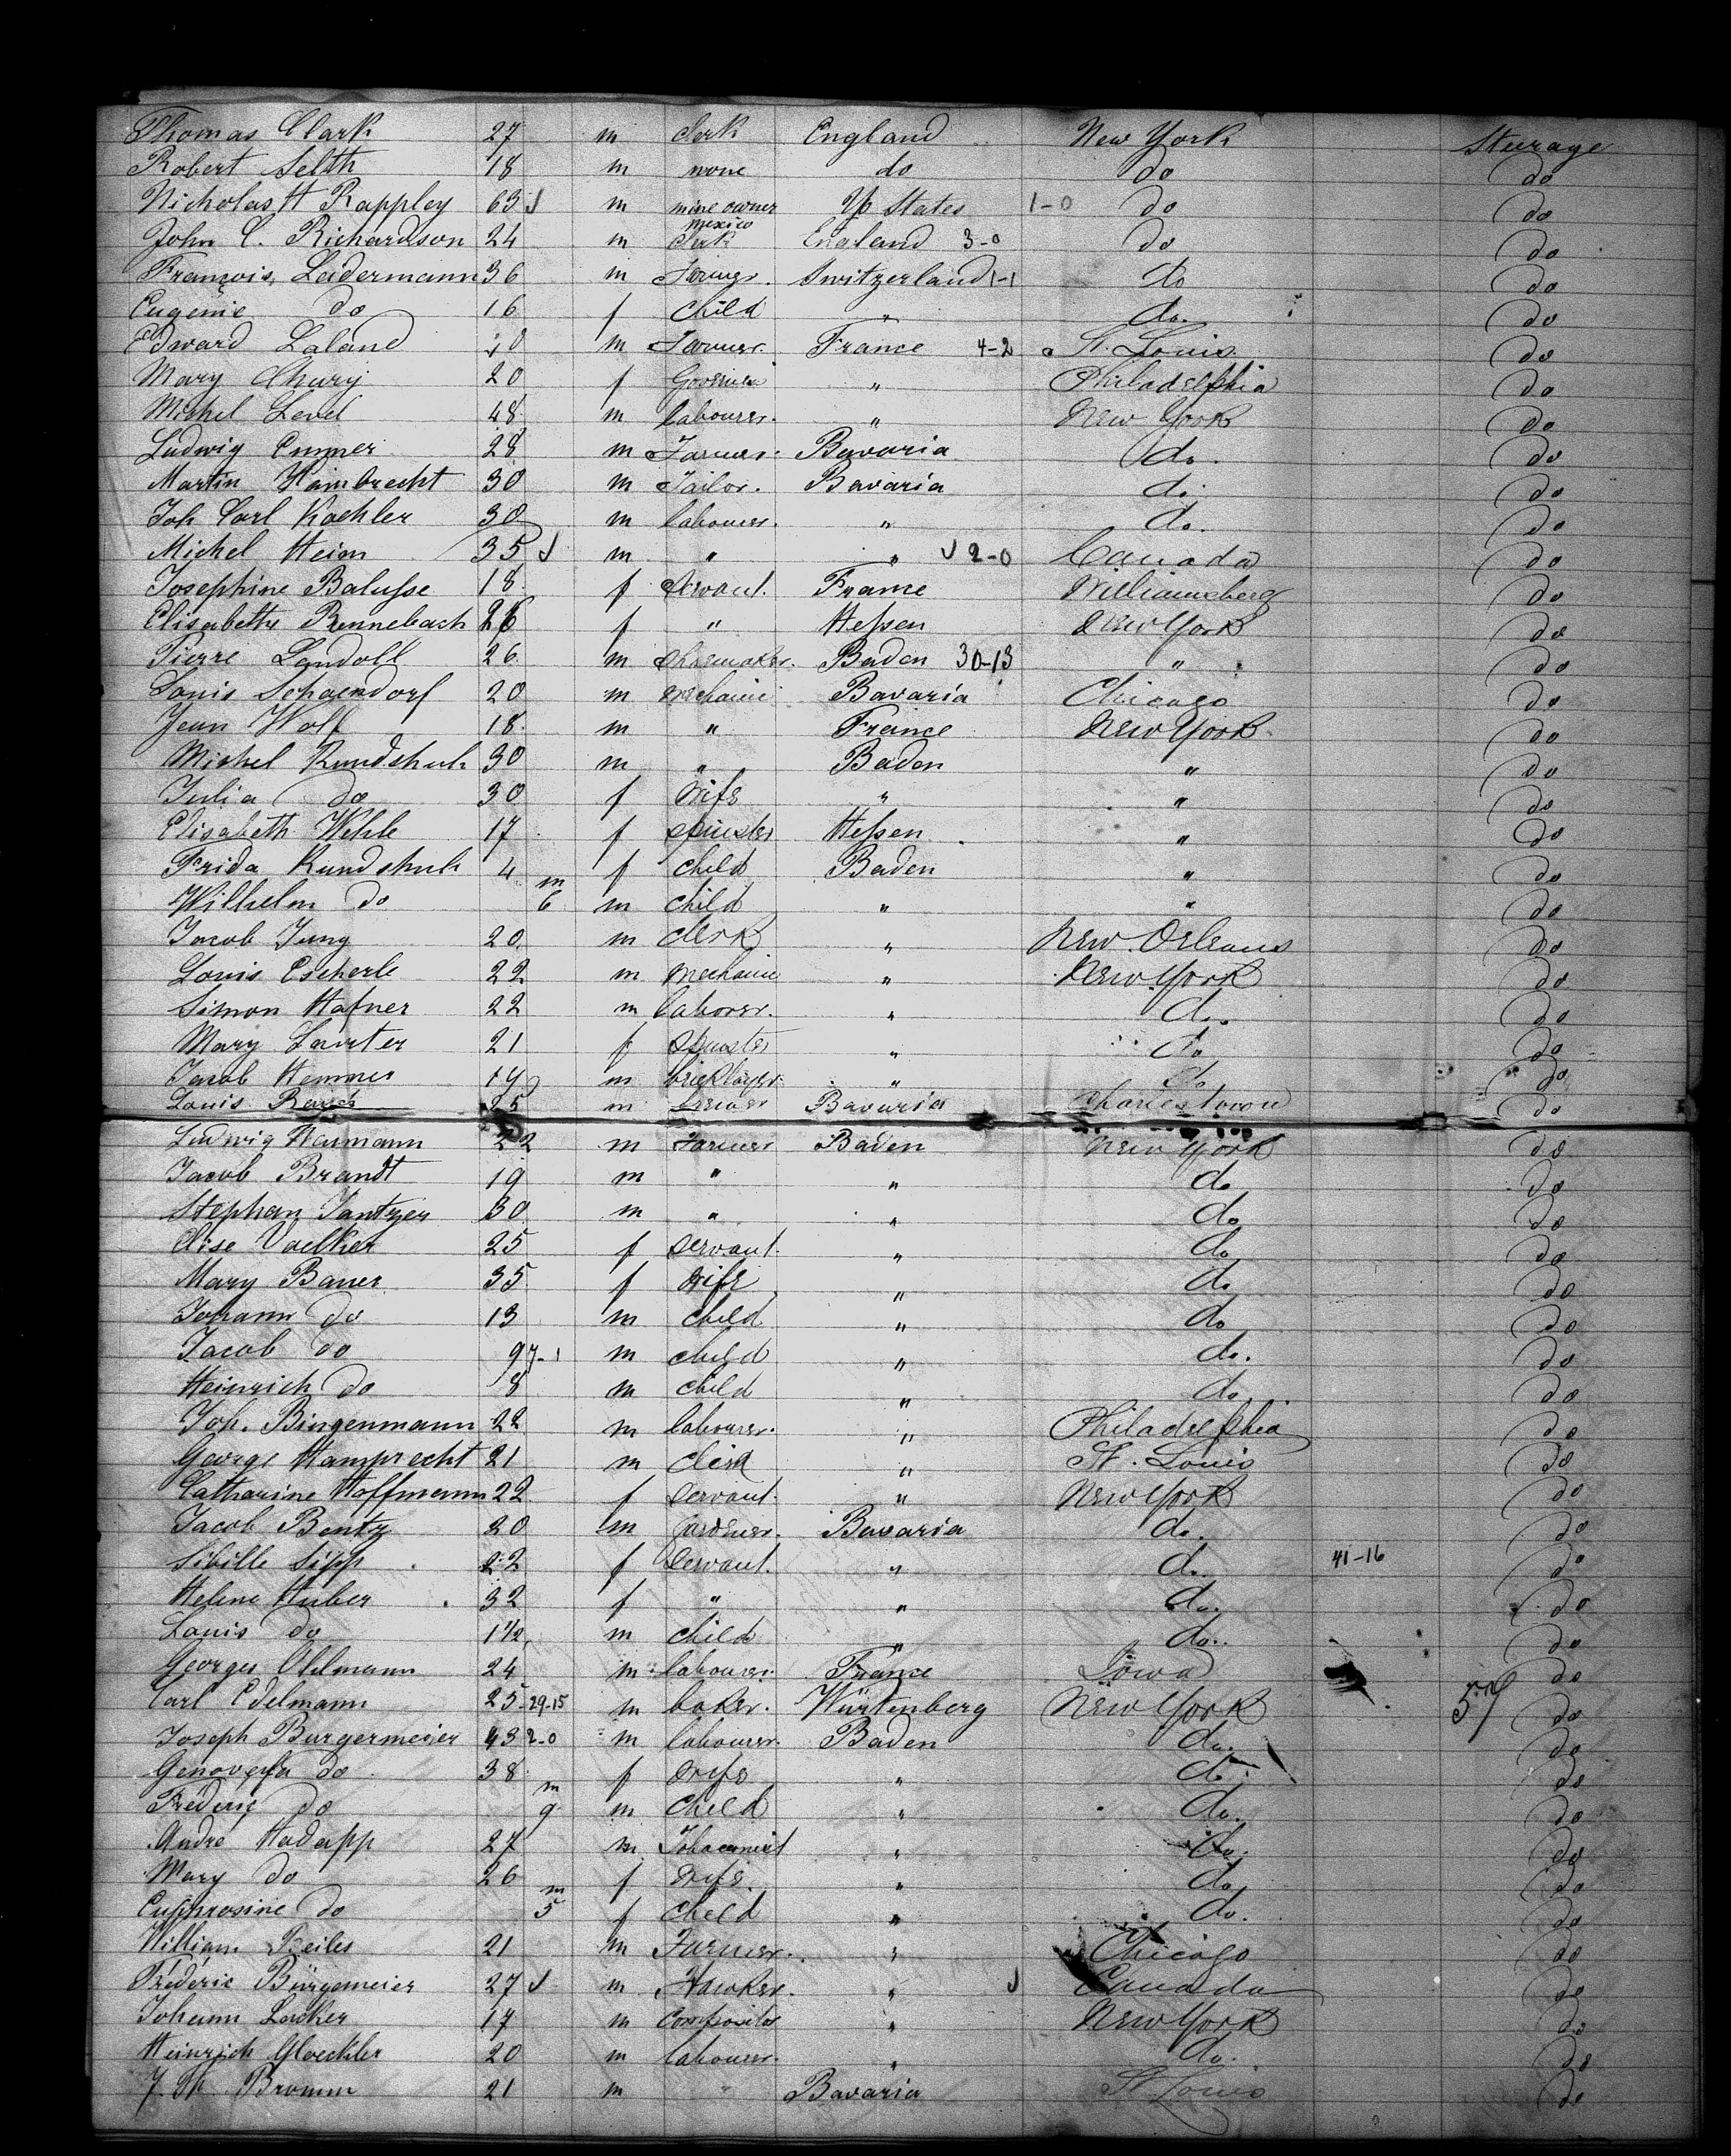 Thomas Clark 27 m Clerk England New York Steerage
Robert Selth 18 m none do do do
Nicholas H Rappley 63 m mine owner mexico Uo States 1-0 do do
John C. Richardson 24 m Clerk England 3-0 do do
François Ledermann 36 m Farmer. Switzerland 1-1 do do
Eugénie do 16 f Child " do. do
Edward Laland m Farmer. France 4-2 St. Louis do
Mary Chury 20 f " Philadelphia do
Michel Level 48 m labourer. " New York do
Ludwig Emmer 28 m Farmer. Bavaria do. do
Martin Hambrecht 30 m Tailor. Bavaria do. do
Joh Carl Koehler 30 m labourer. " do. do
Michel Heim 35 m " " 2-0 Canada do
Josephine Balusse 18 f Servant. France Williamsberg do
Elisabethe Rennebach 26 f " Hessen New York do
Pierre Landolt 26 m Shoemaker. Baden 30-13 " do
Louis Schoendorf 20 m mechanic Bavaria Chicago do
Jean Wolf 18 m " France New York do
Michel Kundshuh 30 m " Baden " do
Julia do 30 f Wife " " do
Elisabeth Wehle 17 f Spinster Hessen " do
Frida Kundshuh 4 f Child Baden " do
Wilhelm do m 6 m Child " " do
Jacob Jung 20 m Clerk " New Orleans do
Louis Escherle 22 m Mechanic " New York do
Simon Hafner 22 m laborer. " do. do
Mary Lauter 21 f Spinster " do do
Jacob Hemmer 19 m bricklayer. " do do
Louis Rauch 25 m Brewer Bavaria Charlestown do
Ludwig Naumann 22 m Farmer Baden New York do
Jacob Brandt 19 m " " do do
Stephan Jantzer 30 m " " do do
Elise Voelker 25 f Servant. " do do
Mary Bauer 35 f Wife " do do
Johann do 13 m Child " do do
Jacob do 9 7-1 m Child " do. do
Heinrich do 8 m Child " do. do
Joh. Bingenmann 22 m labourer. " Philadelphia do
George Hamprecht 21 m Clerk " St. Louis do
Catharine Hoffmann 22 f Servant. " New York do
Jacob Bentz 20 m Gardener. Bavaria do. do
Sibille Sipp 22 f Servant. " do. 41-16 do
Helene Huber 32 f " " do. do
Louis do 1½ m Child " do. do
Georges Ohlmann 24 m labourer. France Iowa do
Carl Edelmann 25 29-15 m baker. Würtenberg New York 57 do
Joseph Burgermeier 43 2-0 m labourer. Baden do. do
Genovefa do 38 f Wife " do. do
Frédéric do m 9 m Child " do. do
André Hadapp 27 m Tobaconist " do. do
Mary do 26 f Wife. " do. do
Euphrosine do m 5 f Child " do. do
William Beiles 21 m Farmer. " Chicago do
Frédéric Bürgemeier 27 m Hawker. " Canada do
Johann Lacker 17 m Compositor " New York do
Heinrich Gloeckler 20 m labourer. " do. do
J. Th. Bromm 21 m " Bavaria St Louis do